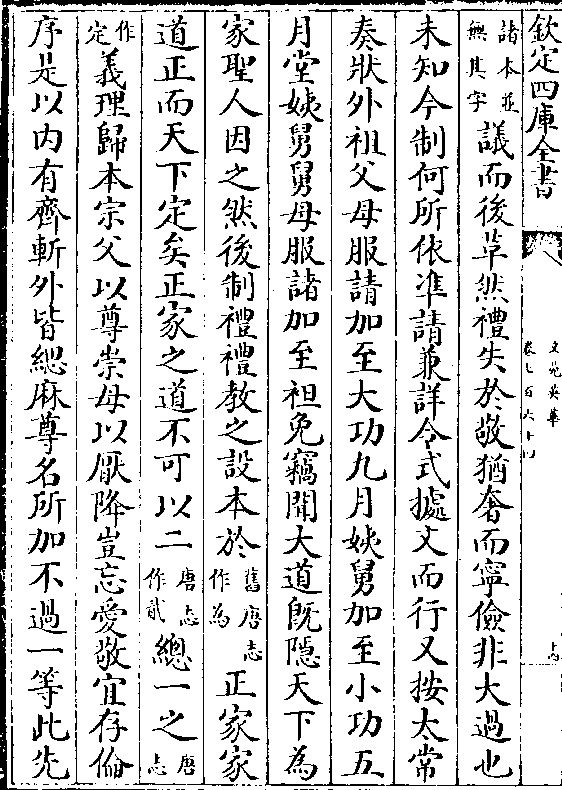 欽定四庫全書
文苑英華
卷七百六十四
諸本並無其字議而後草然禮失於敬猶奢而寧儉非大過也
未知今制何所依準請兼詳令式據文而行又按太常
奏狀外祖父母服請加至大功九月姨舅加至小功五
月堂姨舅舅母服諸加至袒免竊聞大道既隱天下為
家聖人因之然後制禮禮教之設本於舊唐志作為正家家
道正而天下定矣正家之道不可以二唐志作貳總一之唐志
作定義理歸本宗父以尊崇母以厭降豈忘愛敬宜存倫
序是以內有齊斬外皆緦麻尊名所加不過一等此先